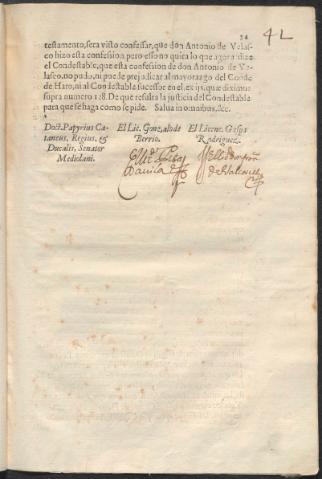 34 42
testamento, sera visto confessar, que don Antonio de Velas-
co hizo esta confession pero esso no quita lo que agora dize
el Condestable, que esta confession de don Antonio de Ve-
lasco, no pudo, ni puede prejudicar al mayorazgo del Conde
de Haro, ni al Condestable successor en el, ex ijs, quæ diximus
supra numero 128. De que resulta la justicia del Condestable
para que se haga como se pide. Salua in omnibus, &c.
Doct. Papyrius Ca- El Lic. Gonzalo de El Licenc. Gaspar
taneus, Regius, & Berrio. Rodriguez.
Ducalis, Senator
Mediolani.